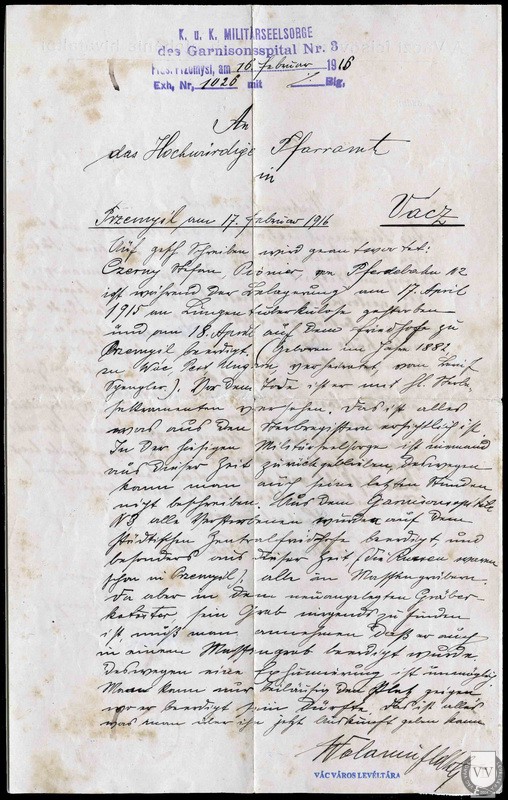 K. u. K. MILITÄRSEELSORGE
des Garnisonsspital Nr. 3
Przemyśl, am 16. Februar 1916
Exh. Nr. 1026 mit Blg.
An
das Hochwürdige Pfarramt
in
Vacz
Przemyśl am 17. Februar 1916
Auf gesch. Schreiben wird geantwortet:
Czerny Stefan, Pionier, Pferdebahn 12
ist während der Belagerung am 17. April
1915 an Lungentuberkulose gestorben
und am 18. April auf dem Friedhofe zu
Przemyśl beerdigt. (Geboren im Jahr 1882
in Vác Pest Ungarn, verheiratet, von Beruf
Spengler). Vor dem Tode ist er mit hl. Sterb-
sakramenten versehen. Das ist alles
was aus den Sterberegistern ersichtlich ist.
In der hiesigen Militärseelsorge ist niemand
aus dieser Zeit zurückgeblieben, deswegen
kann man auch seine letzten Stunden
nicht beschreiben. Aus dem Garnisonsspitale
N3 alle Verstorbenen wurden auf dem
städtischen Zentralfriedhofe beerdigt und
besonders aus dieser Zeit, (die Russen waren
schon in Przemyśl), alle in Massengräbern.
Da aber in dem neuangelegten Gräber-
kataster sein Grab nirgends zu finden
ist, muß man annehmen daß er auch
in einem Massengrab beerdigt wurde
deswegen eine Exhumierung ist unmöglich.
Man kann nur beiläufig den Platz zeigen
wo er beerdigt sein dürfte. Das ist alles
was man über ihn jetzt Auskunft geben kann
VÁC VÁROS LEVÉLTÁRA